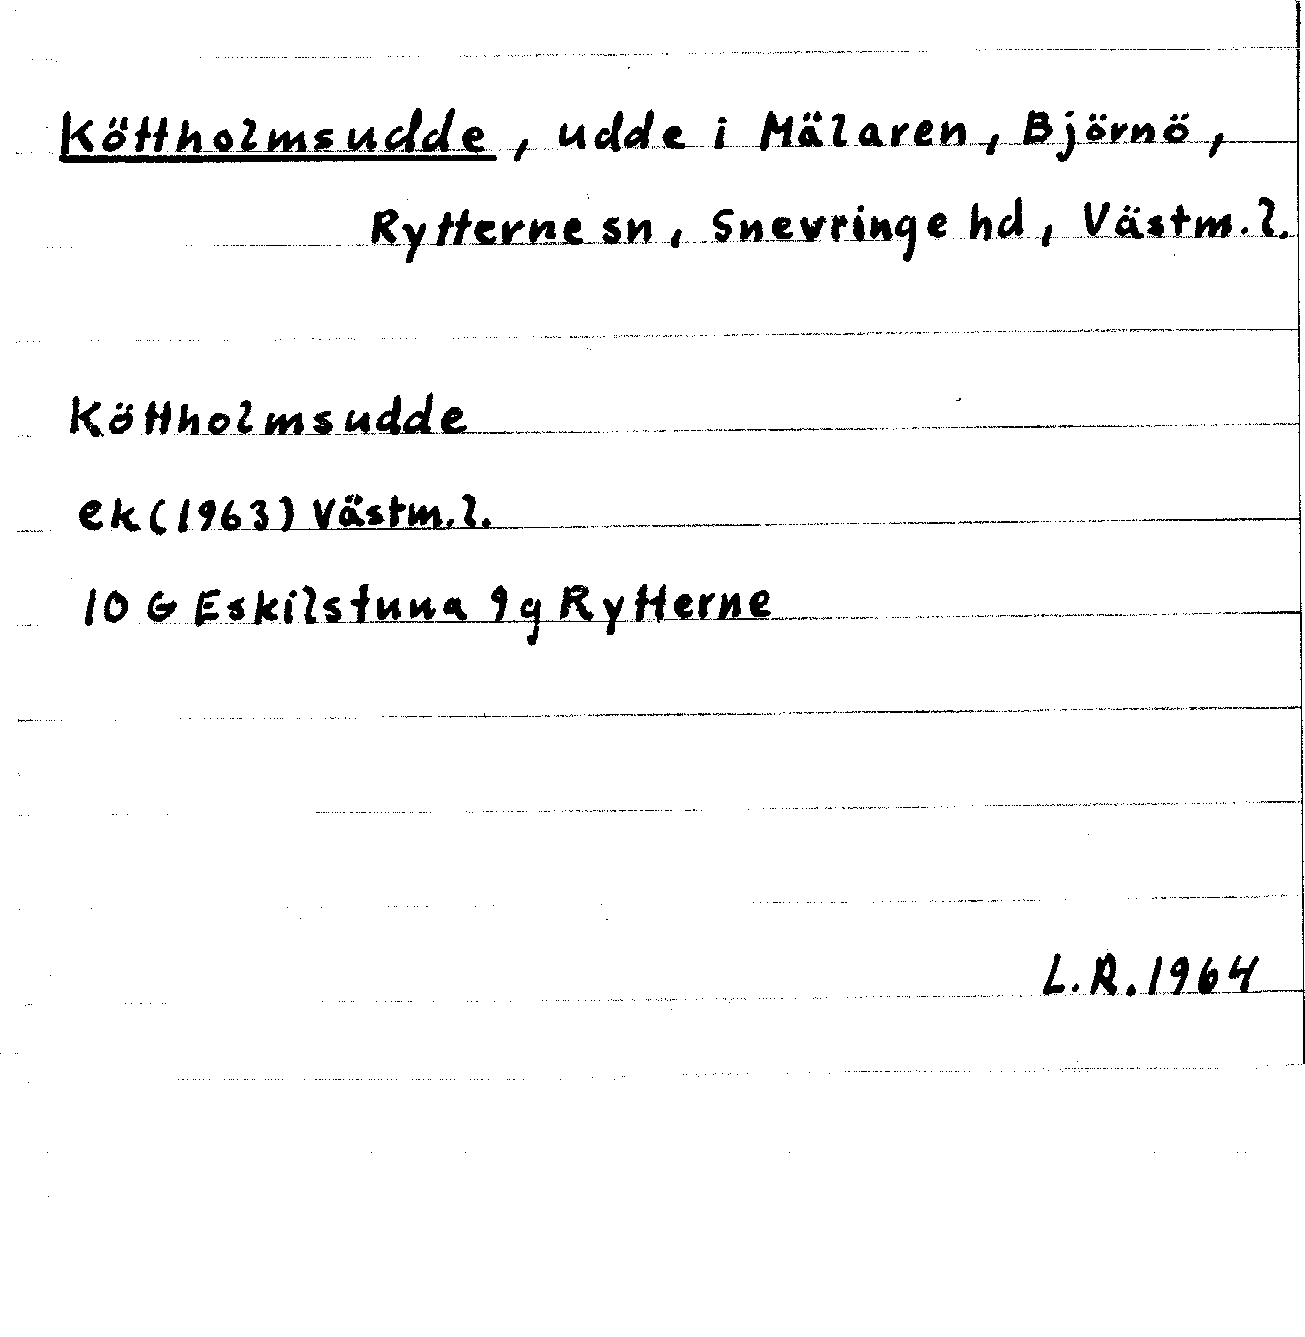 Köttholmsudde, udde i Mälaren, Björnö,
Rytterne sn, Snevringe hd, Västm.l.
Köttholmsudde
ek (1963) Västm.l.
10 G Eskilstuna 9g Rytterne
L.R. 1964